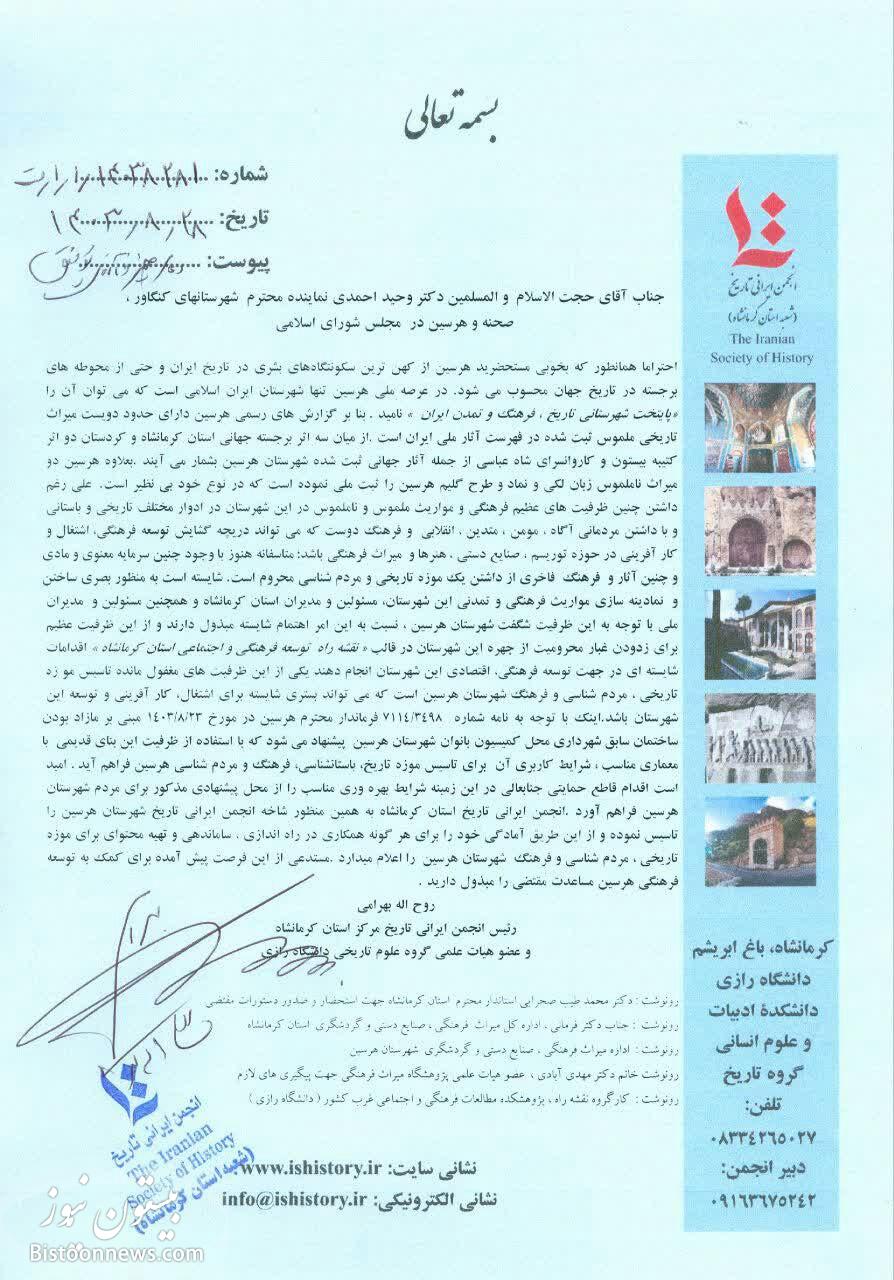 بسمه تعالی
شماره: ۱۴۰۳۸۲۸۱
تاریخ: ۱۴۰۳٫۸٫۲۸
پیوست:
انجمن ایرانی تاریخ
(شعبه استان کرمانشاه)
The Iranian
Society of History
جناب آقای حجت الاسلام و المسلمین دکتر وحید احمدی نماینده محترم شهرستانهای کنگاور ،
صحنه و هرسین در مجلس شورای اسلامی
احتراما همانطور که بخوبی مستحضرید هرسین از کهن ترین سکونتگاه‌های بشری در تاریخ ایران و حتی از محوطه های
برجسته در تاریخ جهان محسوب می شود. در عرصه ملی هرسین تنها شهرستان ایران اسلامی است که می توان آن را
«پایتخت شهرستانی تاریخ ، فرهنگ و تمدن ایران » نامید . بنا بر گزارش های رسمی هرسین دارای حدود دویست میراث
تاریخی ملموس ثبت شده در فهرست آثار ملی ایران است .از میان سه اثر برجسته جهانی استان کرمانشاه و کردستان دو اثر
کتیبه بیستون و کاروانسرای شاه عباسی از جمله آثار جهانی ثبت شده شهرستان هرسین بشمار می آیند .بعلاوه هرسین دو
میراث ناملموس زبان لکی و نماد و طرح گلیم هرسین را ثبت ملی نموده است که در نوع خود بی نظیر است. علی رغم
داشتن چنین ظرفیت های عظیم فرهنگی و مواریث ملموس و ناملموس در این شهرستان در ادوار مختلف تاریخی و باستانی
و با داشتن مردمانی آگاه ، مومن ، متدین ، انقلابی و فرهنگ دوست که می تواند دریچه گشایش توسعه فرهنگی، اشتغال و
کار آفرینی در حوزه توریسم ، صنایع دستی ، هنرها و میراث فرهنگی باشد؛ متاسفانه هنوز با وجود چنین سرمایه معنوی و مادی
و چنین آثار و فرهنگ فاخری از داشتن یک موزه تاریخی و مردم شناسی محروم است. شایسته است به منظور بصری ساختن
و نمادینه سازی مواریث فرهنگی و تمدنی این شهرستان، مسئولین و مدیران استان کرمانشاه و همچنین مسئولین و مدیران
ملی با توجه به این ظرفیت شگفت شهرستان هرسین ، نسبت به این امر اهتمام شایسته مبذول دارند و از این ظرفیت عظیم
برای زدودن غبار محرومیت از چهره این شهرستان در قالب « نقشه راه توسعه فرهنگی و اجتماعی استان کرمانشاه » اقدامات
شایسته ای در جهت توسعه فرهنگی، اقتصادی این شهرستان انجام دهند یکی از این ظرفیت های مغفول مانده تاسیس مو زه
تاریخی ، مردم شناسی و فرهنگ شهرستان هرسین است که می تواند بستری شایسته برای اشتغال، کار آفرینی و توسعه این
شهرستان باشد.اینک با توجه به نامه شماره ۷۱۱۴/۳۴۹۸ فرماندار محترم هرسین در مورخ ۱۴۰۳/۸/۲۳ مبنی بر مازاد بودن
ساختمان سابق شهرداری محل کمیسیون بانوان شهرستان هرسین پیشنهاد می شود که با استفاده از ظرفیت این بنای قدیمی با
معماری مناسب ، شرایط کاربری آن برای تاسیس موزه تاریخ، باستانشناسی، فرهنگ و مردم شناسی هرسین فراهم آید . امید
است اقدام قاطع حمایتی جنابعالی در این زمینه شرایط بهره وری مناسب را از محل پیشنهادی مذکور برای مردم شهرستان
هرسین فراهم آورد .انجمن ایرانی تاریخ استان کرمانشاه به همین منظور شاخه انجمن ایرانی تاریخ شهرستان هرسین را
تاسیس نموده و از این طریق آمادگی خود را برای هر گونه همکاری در راه اندازی ، ساماندهی و تهیه محتوای برای موزه
تاریخی ، مردم شناسی و فرهنگ شهرستان هرسین را اعلام میدارد .مستدعی از این فرصت پیش آمده برای کمک به توسعه
فرهنگی هرسین مساعدت مقتضی را مبذول دارید .
روح اله بهرامی
رئیس انجمن ایرانی تاریخ مرکز استان کرمانشاه
و عضو هیات علمی گروه علوم تاریخی دانشگاه رازی
رونوشت : دکتر محمد طیب صحرایی استاندار محترم استان کرمانشاه جهت استحضار و صدور دستورات مقتضی
رونوشت : جناب دکتر فرمانی ، اداره کل میراث فرهنگی ، صنایع دستی و گردشگری استان کرمانشاه
رونوشت : اداره میراث فرهنگی ، صنایع دستی و گردشگری شهرستان هرسین
رونوشت خانم دکتر مهدی آبادی ، عضو هیات علمی پژوهشگاه میراث فرهنگی جهت پیگیری های لازم
رونوشت : کارگروه نقشه راه ، پژوهشکده مطالعات فرهنگی و اجتماعی غرب کشور ( دانشگاه رازی )
کرمانشاه، باغ ابریشم
دانشگاه رازی
دانشکدهٔ ادبیات
و علوم انسانی
گروه تاریخ
تلفن:
۰۸۳۳۴۲۶۵۰۲۷
دبیر انجمن:
۰۹۱۶۳۶۷۵۲۴۲
انجمن ایرانی تاریخ
The Iranian
Society of History
(شعبه استان کرمانشاه)
نشانی سایت: www.ishistory.ir
نشانی الکترونیکی: info@ishistory.ir
بیستون نیوز
Bistoonnews.com